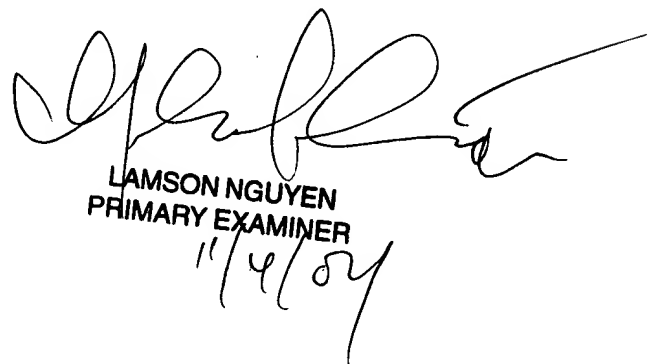 LAMSON NGUYEN
PRIMARY EXAMINER
11/4/04